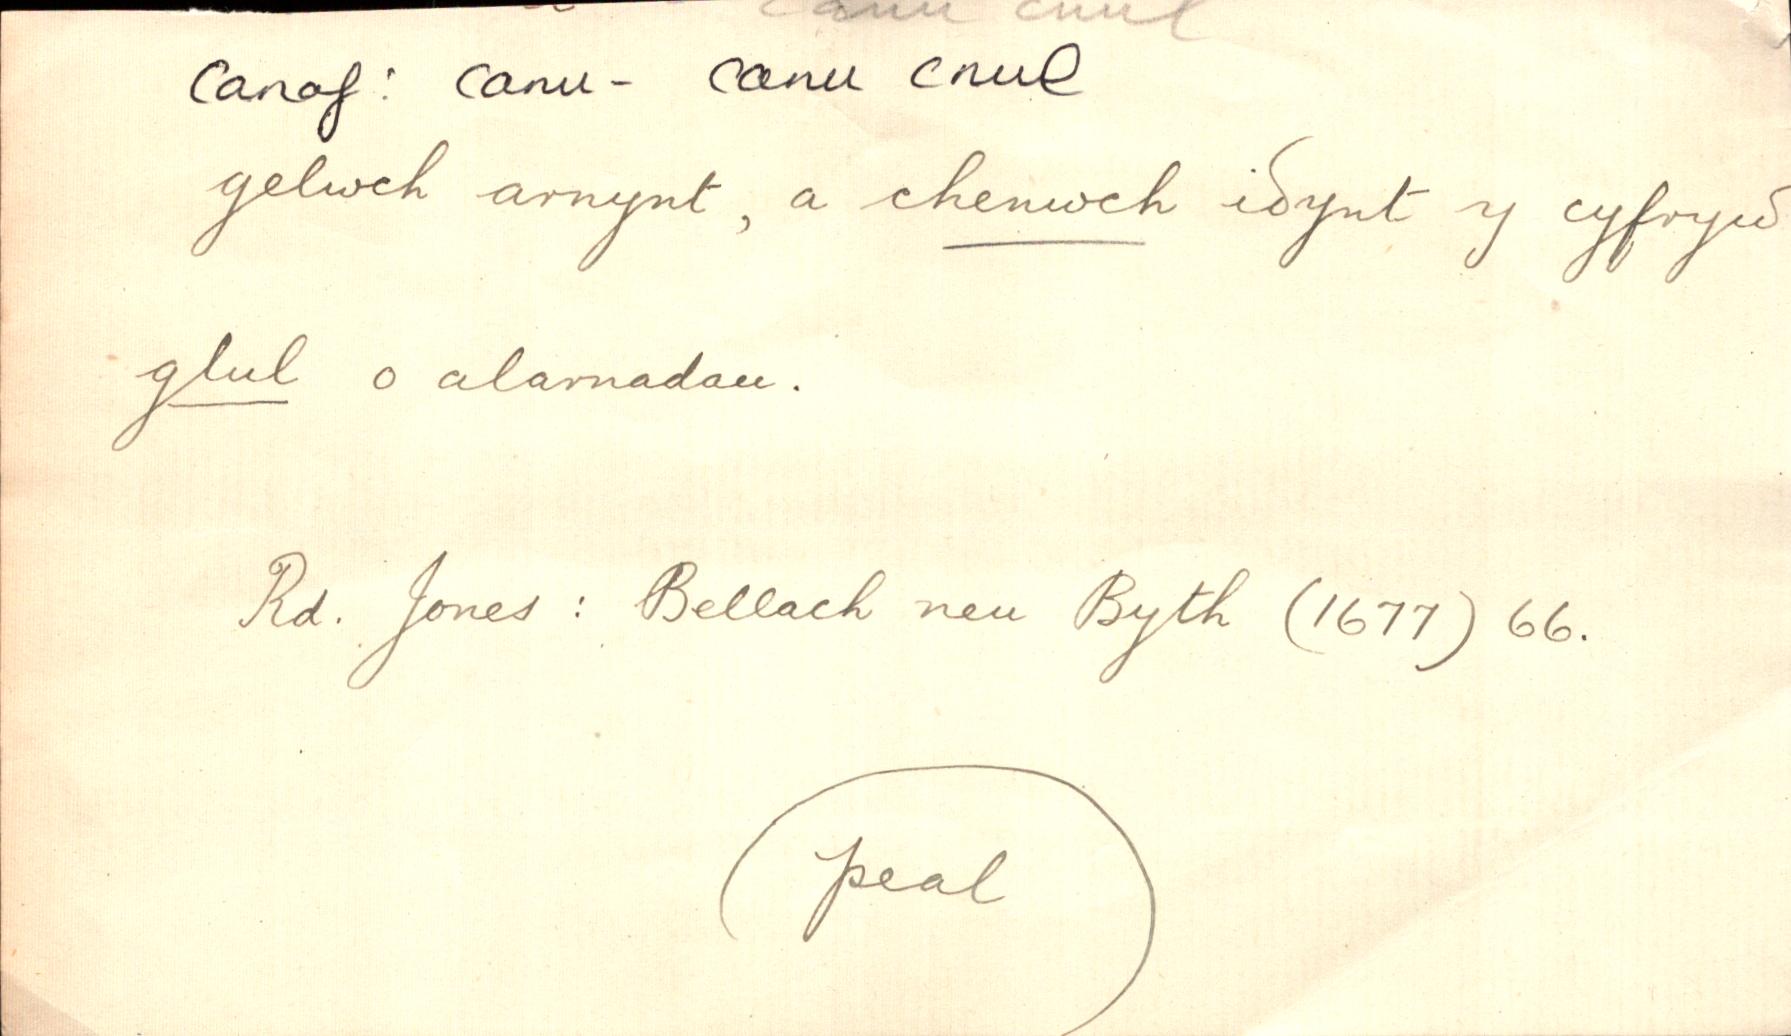 canu cnul
canaf: canu - canu cnul
gelwch arnynt, a chenwch iδynt y cyfryw
glul o alarnadau.
Rd. Jones: Bellach neu Byth (1677) 66.
peal